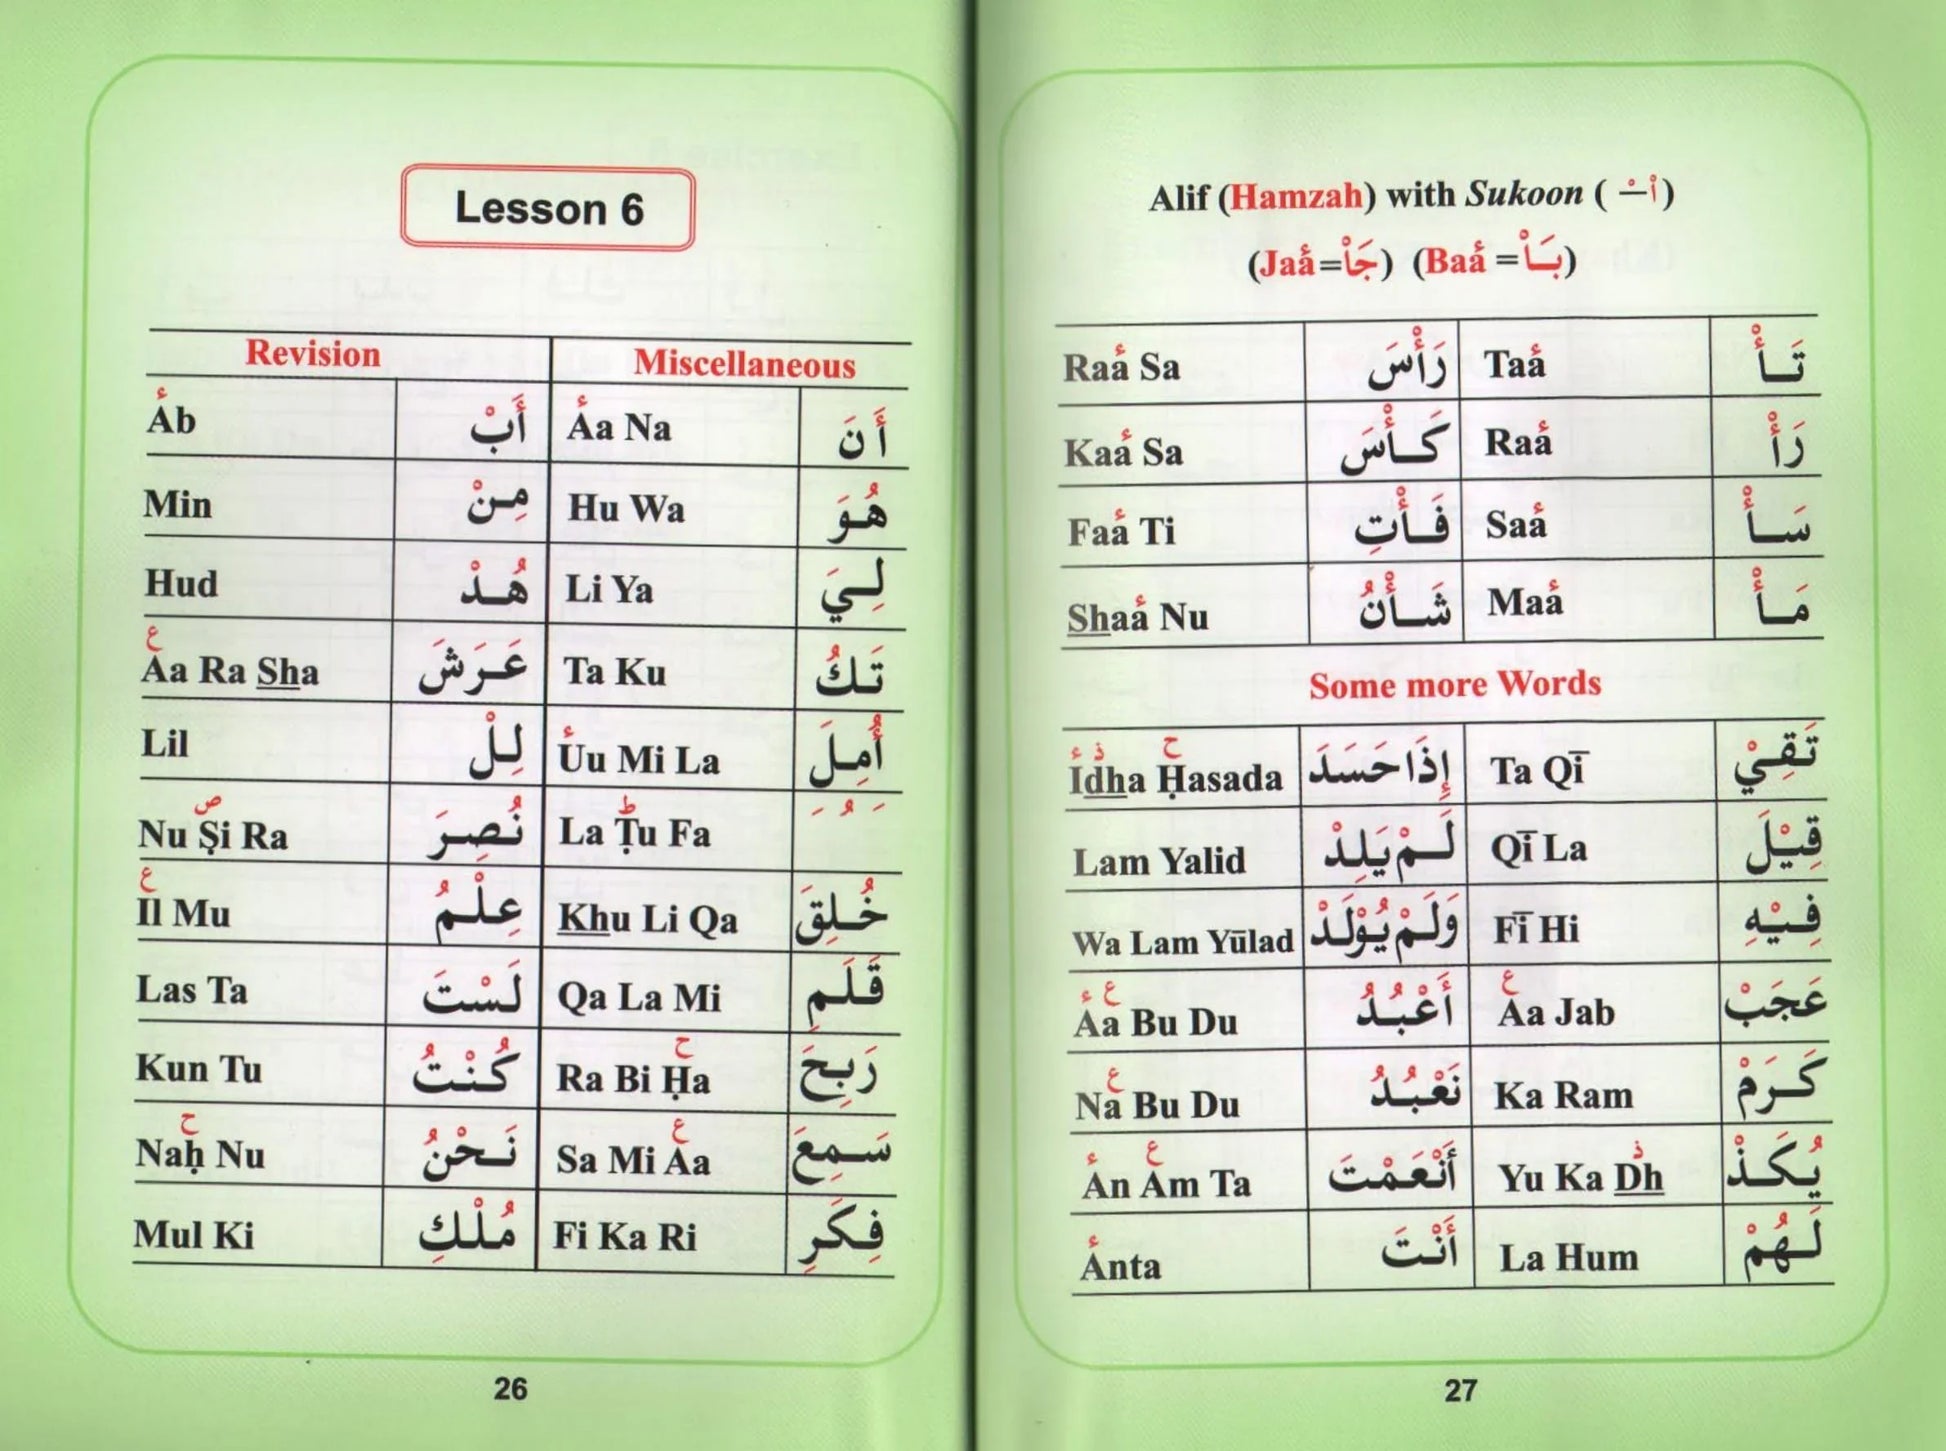 Lesson 6
Revision Miscellaneous
Ab أَبْ Aa Na أَنَ
Min مِنْ Hu Wa هُوَ
Hud هُدْ Li Ya لِيَ
Aa Ra Sha عَرَشَ Ta Ku تَكُ
Lil لِلْ Uu Mi La أُمِلَ
Nu Ṣi Ra نُصِرَ La Ṭu Fa
Il Mu عِلْمُ Khu Li Qa خُلِقَ
Las Ta لَسْتَ Qa La Mi قَلَمِ
Kun Tu كُنْتُ Ra Bi Ḥa رَبِحَ
Naḥ Nu نَحْنُ Sa Mi Aa سَمِعَ
Mul Ki مُلْكِ Fi Ka Ri فِكَرِ
26
Alif (Hamzah) with Sukoon ( أْ )
(Jaa = جَأْ) (Baa = بَأْ)
Raa Sa رَأْسَ Taa تَأْ
Kaa Sa كَأْسَ Raa رَأْ
Faa Ti فَأْتِ Saa سَأْ
Shaa Nu شَأْنُ Maa مَأْ
Some more Words
Idha Ḥasada إِذَا حَسَدَ Ta Qī تَقِيْ
Lam Yalid لَمْ يَلِدْ Qī La قِيْلَ
Wa Lam Yūlad وَلَمْ يُوْلَدْ Fī Hi فِيْهِ
Aa Bu Du أَعْبُدُ Aa Jab عَجَبْ
Na Bu Du نَعْبُدُ Ka Ram كَرَمْ
An Am Ta أَنْعَمْتَ Yu Ka Dh يُكَذْ
Anta أَنْتَ La Hum لَهُمْ
27